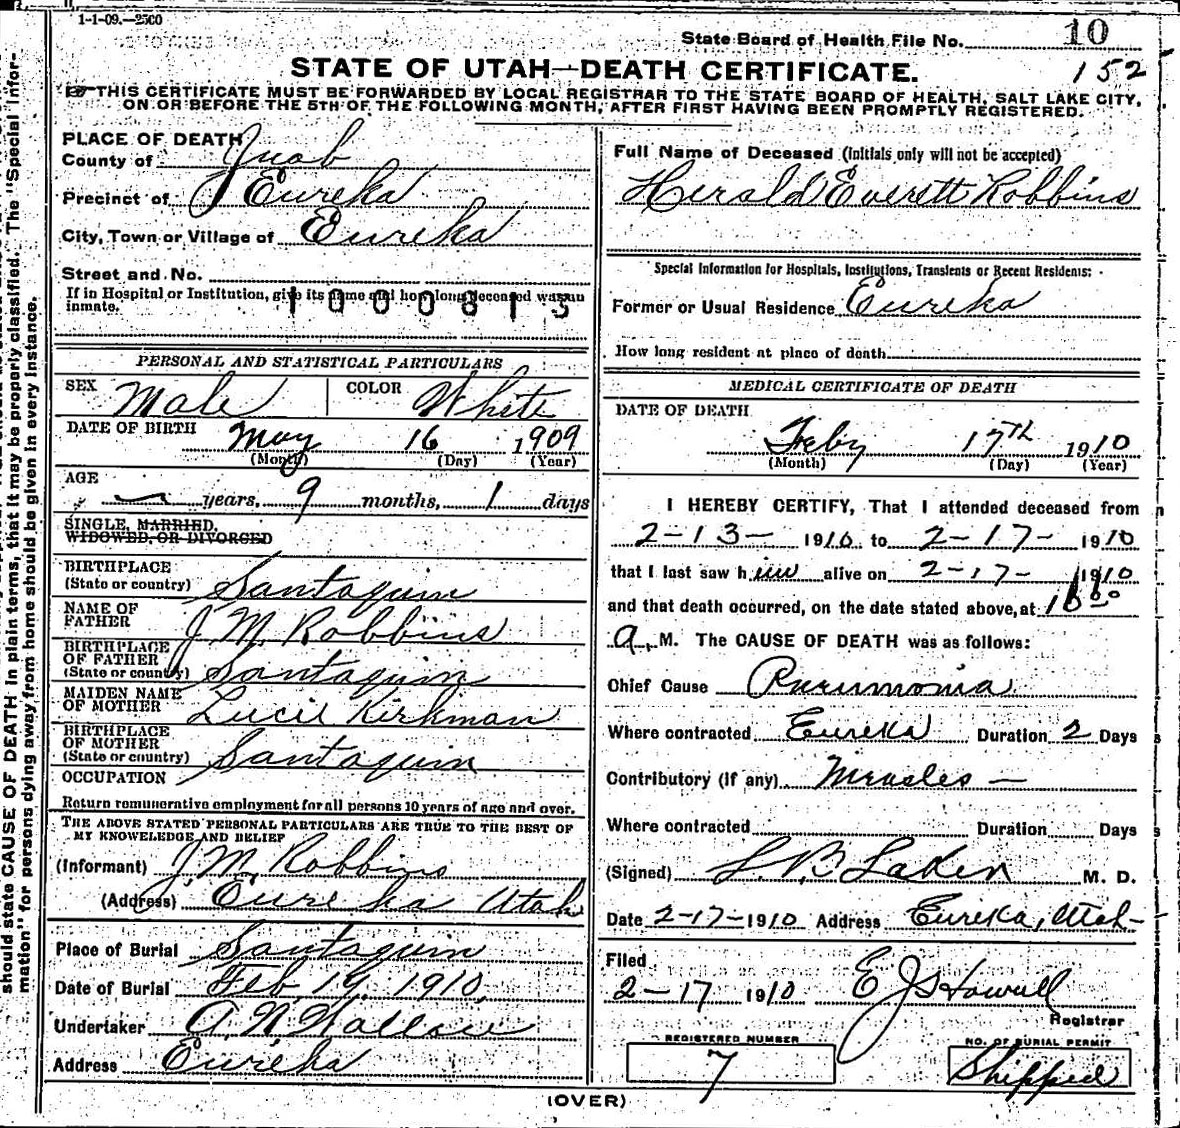 1-1-09.—25C0
State Board of Health File No. 10
152
STATE OF UTAH—DEATH CERTIFICATE.
THIS CERTIFICATE MUST BE FORWARDED BY LOCAL REGISTRAR TO THE STATE BOARD OF HEALTH, SALT LAKE CITY,
ON OR BEFORE THE 5TH OF THE FOLLOWING MONTH, AFTER FIRST HAVING BEEN PROMPTLY REGISTERED.
PLACE OF DEATH
County of Juab
Precinct of Eureka
City, Town or Village of Eureka
Street and No.
If in Hospital or Institution, give its name and how long deceased was an
inmate.
1000813
PERSONAL AND STATISTICAL PARTICULARS
SEX Male COLOR White
DATE OF BIRTH May 16 1909
(Month) (Day) (Year)
AGE
— years, 9 months, 1 days
SINGLE, MARRIED,
WIDOWED, OR DIVORCED
BIRTHPLACE
(State or country) Santaquin
NAME OF
FATHER J. M. Robbins
BIRTHPLACE
OF FATHER
(State or country) Santaquin
MAIDEN NAME
OF MOTHER Lucil Kirkman
BIRTHPLACE
OF MOTHER
(State or country) Santaquin
OCCUPATION
Return remunerative employment for all persons 10 years of age and over.
THE ABOVE STATED PERSONAL PARTICULARS ARE TRUE TO THE BEST OF
MY KNOWELEDGE AND BELIEF
(Informant) J. M. Robbins
(Address) Eureka Utah
Place of Burial Santaquin
Date of Burial Feb. 19. 1910.
Undertaker A. N. Wallace
Address Eureka
Full Name of Deceased (Initials only will not be accepted)
Herald Everett Robbins
Special Information for Hospitals, Institutions, Transients or Recent Residents:
Former or Usual Residence Eureka
How long resident at place of death
MEDICAL CERTIFICATE OF DEATH
DATE OF DEATH
Feby 17TH 1910
(Month) (Day) (Year)
I HEREBY CERTIFY, That I attended deceased from
2-13- 1910 to 2-17- 1910
that I last saw him alive on 2-17- 1910
and that death occurred, on the date stated above, at
a. M. The CAUSE OF DEATH was as follows:
Chief Cause Pneumonia
Where contracted Eureka Duration 2 Days
Contributory (if any) Measles —
Where contracted Duration Days
(Signed) L. B. Laker M. D.
Date 2-17-1910 Address Eureka, Utah-
Filed
2-17 1910 E J Howell
Registrar
REGISTERED NUMBER
7
NO. OF BURIAL PERMIT
Shipped
(OVER)
should state CAUSE OF DEATH in plain terms, that it may be properly classified. The "Special Infor-
mation" for persons dying away from home should be given in every instance.